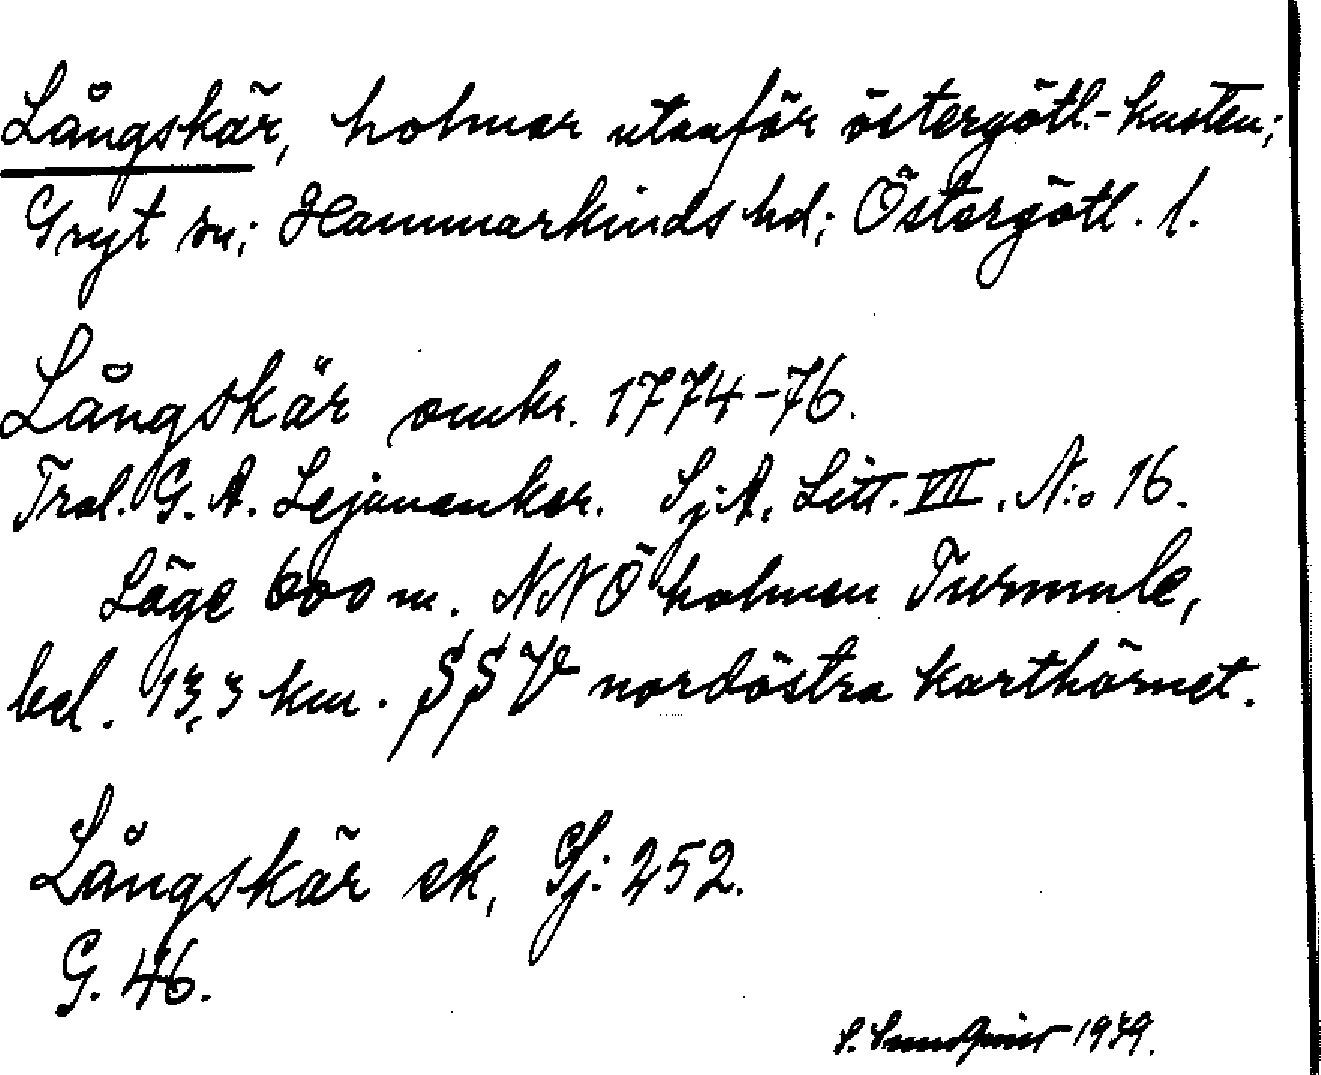 Långskär, holmar utanför östergötl.-kusten;
Gryt sn; Hammarkinds hd; Östergötl. l.
Långskär omkr. 1774-76.
Tral. G. A. Lejonanker. Sj.A. Litt. VIII. N:o 16.
Läge 600 m. NNÖ holmen Turmule,
bel. 13,3 km. SSV nordöstra karthörnet.
Långskär ek, Sj: 252.
G. 46.
S. Sundqvist 1939.